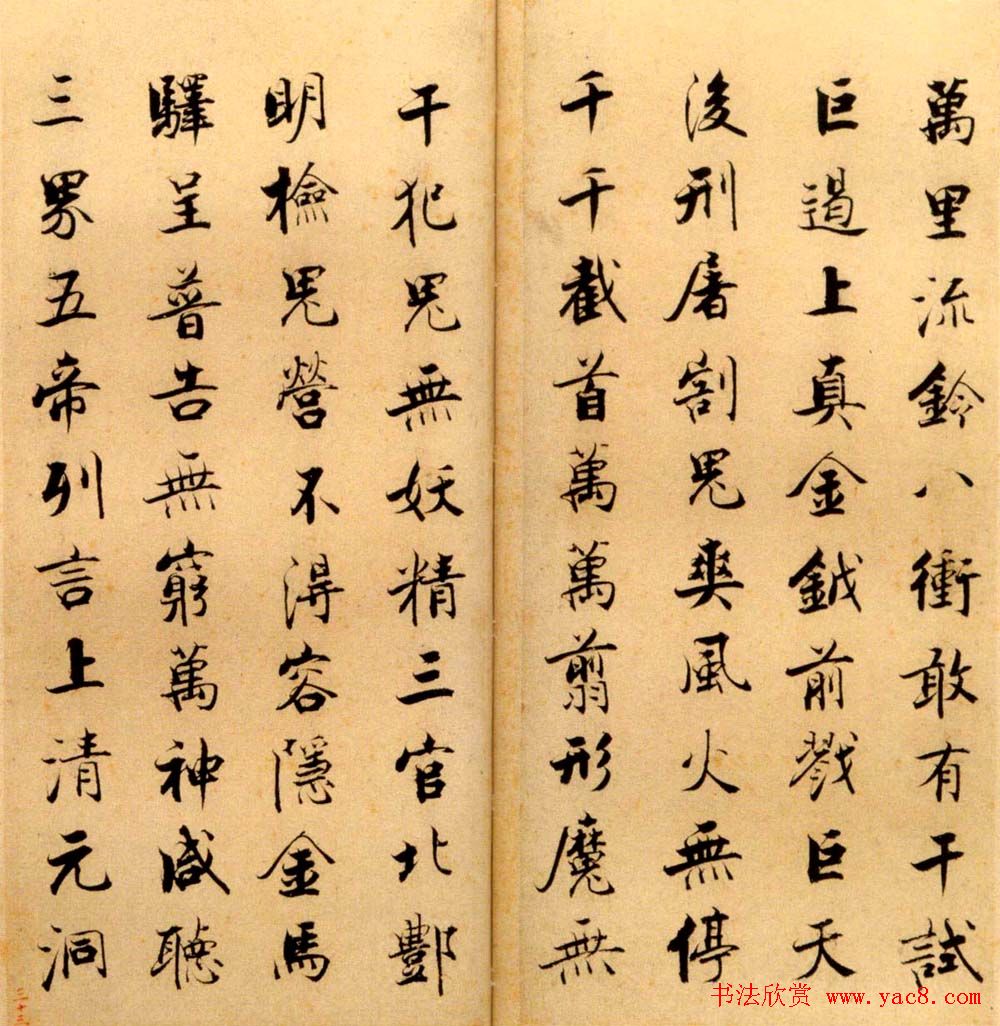 萬里流鈴八衝敢有干試
巨遏上真金鉞前戮巨天
後刑屠割鬼爽風火無停
千千截首萬萬翦形魔無
干犯鬼無妖精三官北酆
明檢鬼營不得容隱金馬
驛呈普告無窮萬神咸聽
三界五帝列言上清元洞
书法欣赏 www.yac8.com